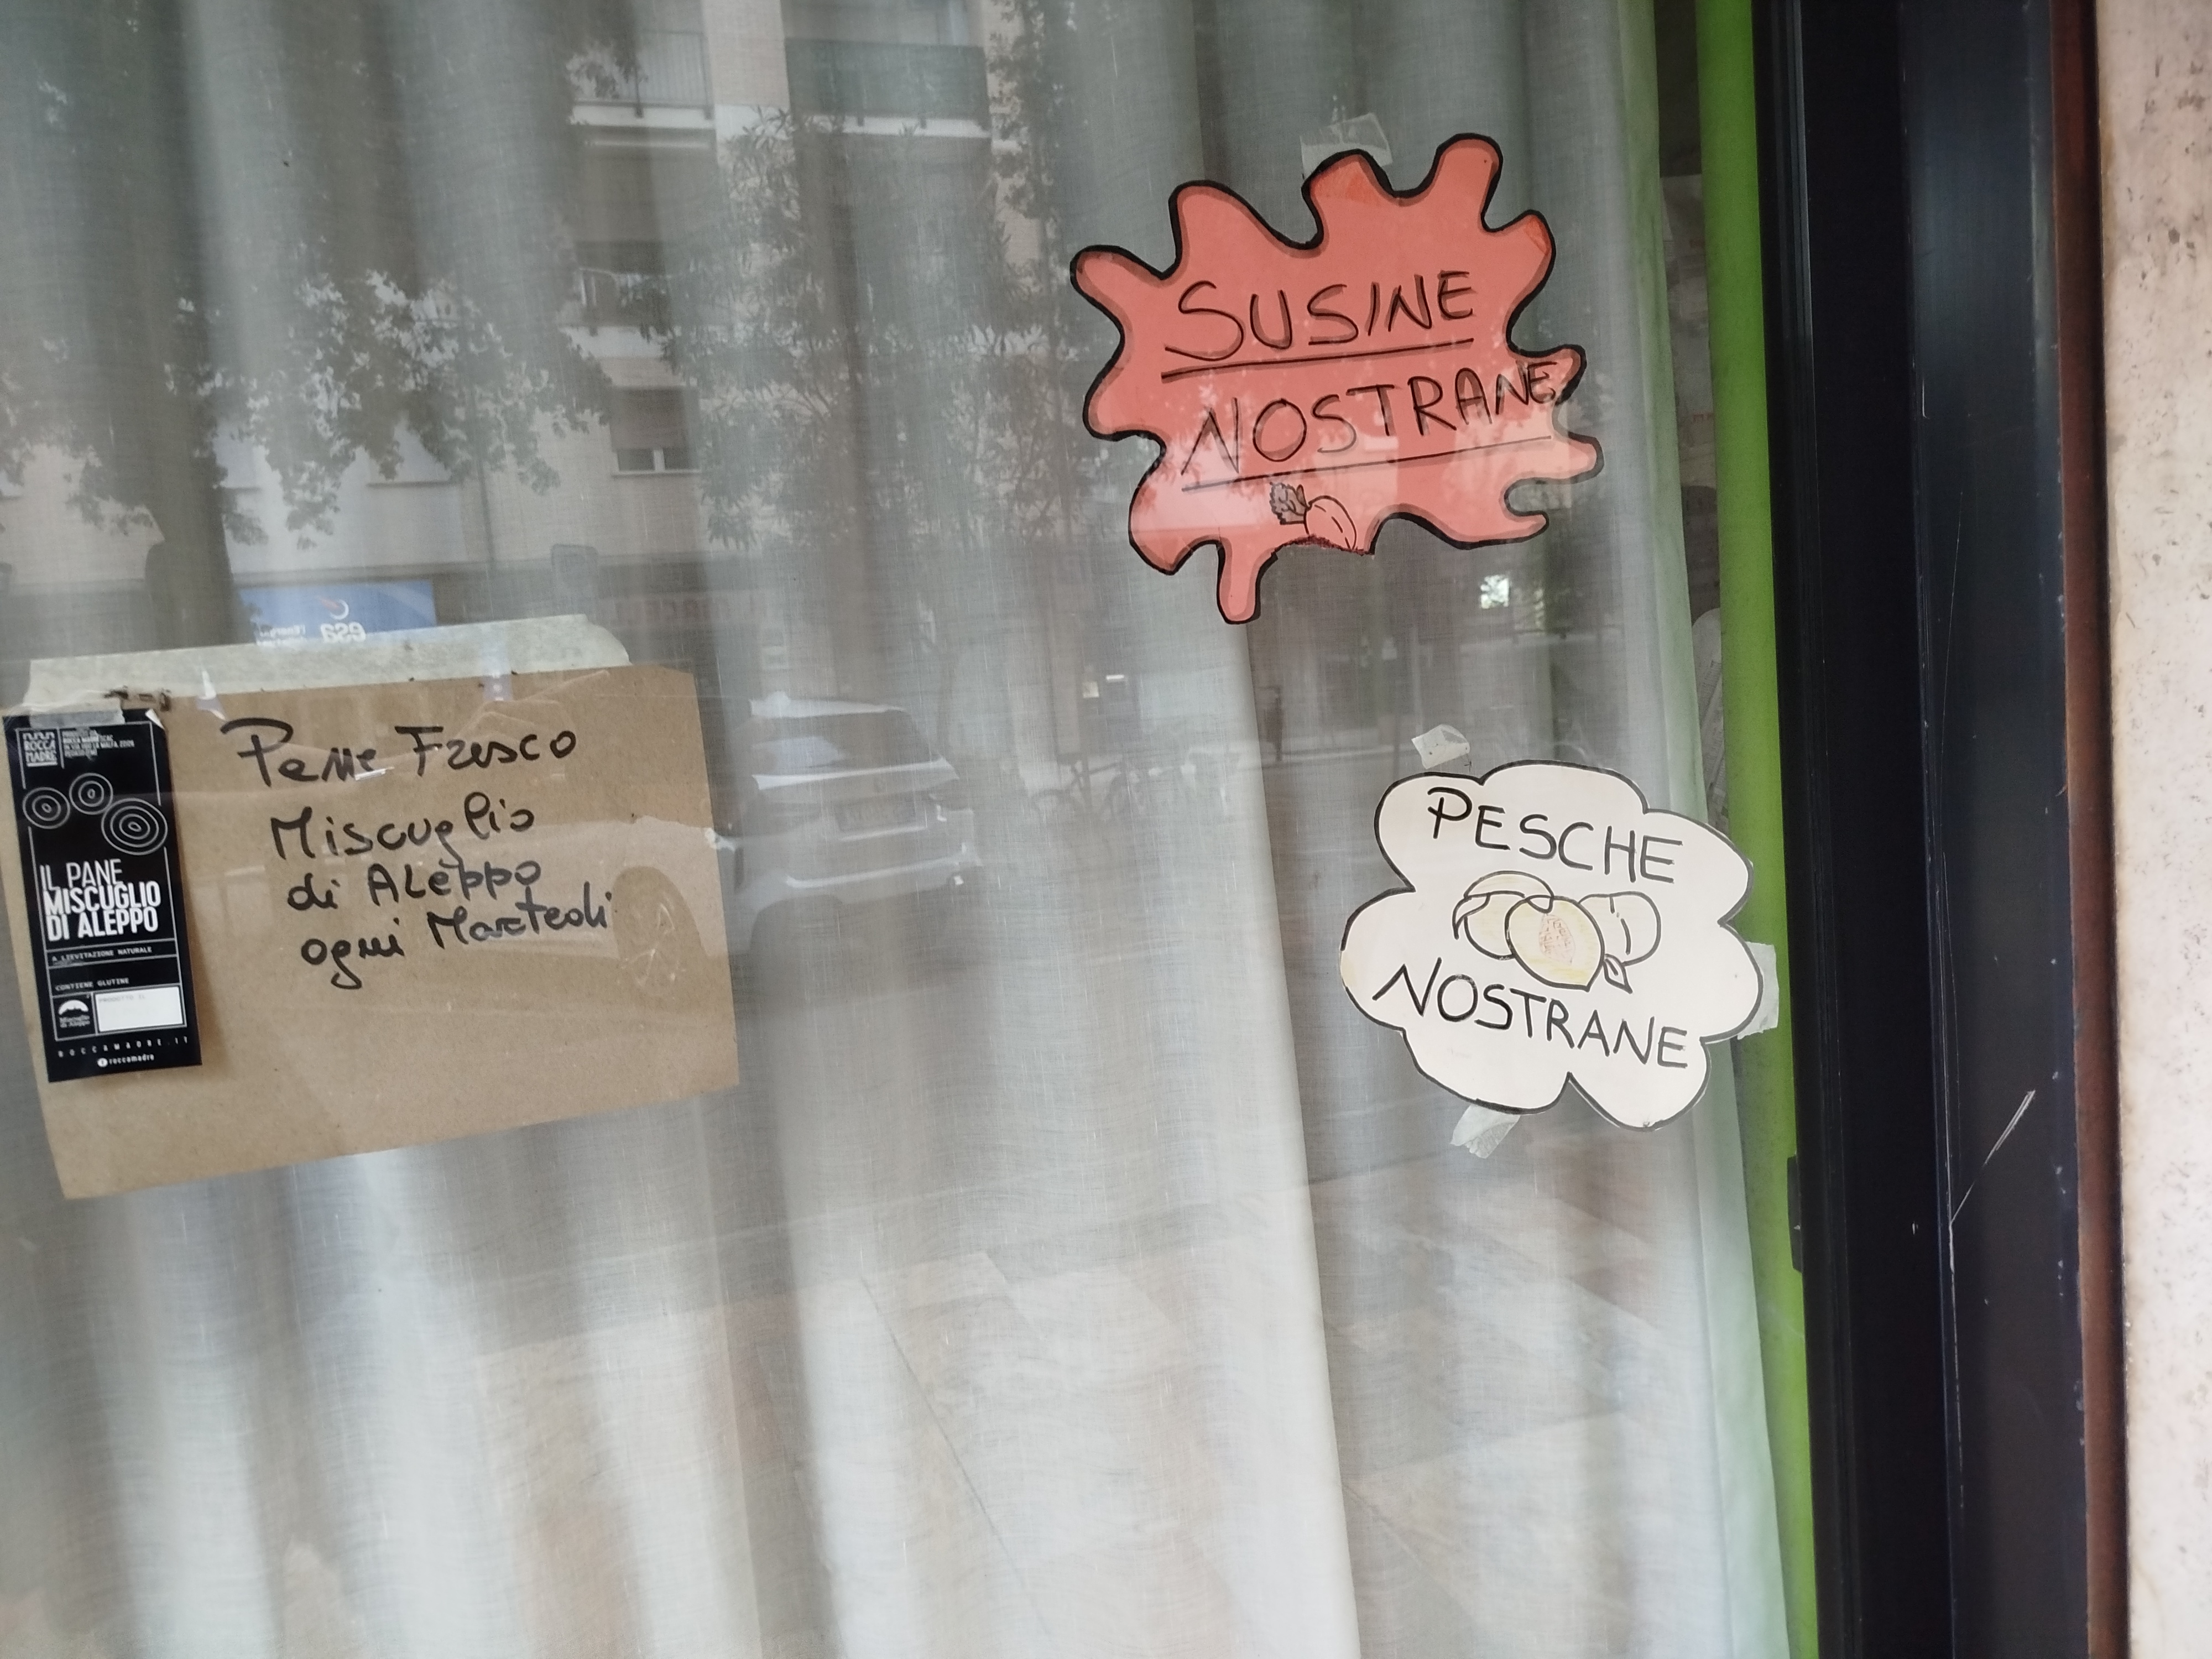 SUSINE
NOSTRANE
PESCHE
NOSTRANE
Pane Fresco
Miscuglio
di Aleppo
ogni Martedi
ROCCA
MADRE
IL PANE
MISCUGLIO
DI ALEPPO
A LIEVITAZIONE NATURALE
CONTIENE GLUTINE
PRODOTTO IL
Miscuglio
di Aleppo
ROCCAMADRE.IT
roccamadre
esa